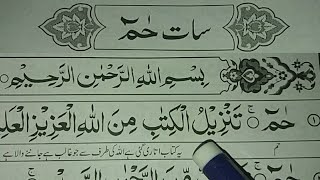 سات حٰمٓ
بِسْمِ اللّٰهِ الرَّحْمٰنِ الرَّحِيْمِ
حٰمٓ ۚ تَنْزِيْلُ الْكِتٰبِ مِنَ اللّٰهِ الْعَزِيْزِ الْعَلِيْ
حم یہ کتاب اتاری گئی ہے اللہ کی طرف سے جو غالب ہے جاننے والا ہے